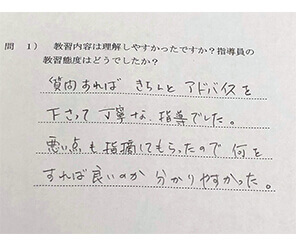 問 1） 教習内容は理解しやすかったですか？指導員の
教習態度はどうでしたか？
質問あれば きちんと アドバイスを
下さって 丁寧な 指導でした。
悪い点も指摘してもらったので 何を
すれば良いのか 分かりやすかった。